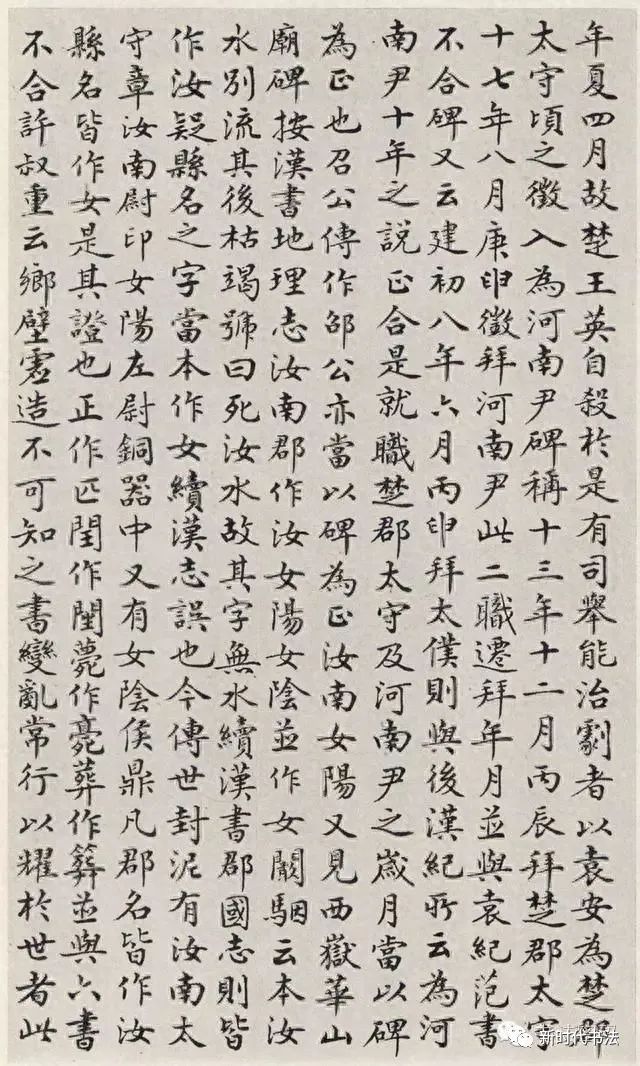 年夏四月故楚王英自殺於是有司舉能治劇者以袁安為楚郡
太守頃之徵入為河南尹碑稱十三年十二月丙辰拜楚郡太守
十七年八月庚申徵拜河南尹此二職遷拜年月並與袁紀范書
不合碑又云建初八年六月丙申拜太僕則與後漢紀所云為河
南尹十年之説正合是就職楚郡太守及河南尹之歲月當以碑
為正也召公傳作邵公亦當以碑為正汝南女陽又見西嶽華山
廟碑按漢書地理志汝南郡作汝女陽女陰並作女闞駰云本汝
水別流其後枯竭號曰死汝水故其字無水續漢書郡國志則皆
作汝疑縣名之字當本作女續漢志誤也今傳世封泥有汝南太
守章汝南尉印女陽左尉銅器中又有女陰侯鼎凡郡名皆作汝
縣名皆作女是其證也正作匹閏作閠薨作薧葬作葬並與六書
不合許叔重云鄉壁虛造不可知之書變亂常行以耀於世者此
新时代书法